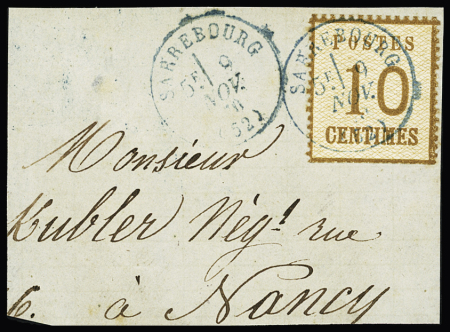 SARREBOURG
5E/ 9
NOV.
(52)
SARREBOURG
5E/ 9
NOV.
POSTES
10
CENTIMES
Monsieur
Kubler Négt rue
à Nancy